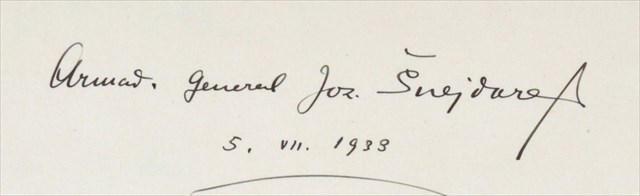 Armád. General Jos. Šnejdárek
5. VII. 1933